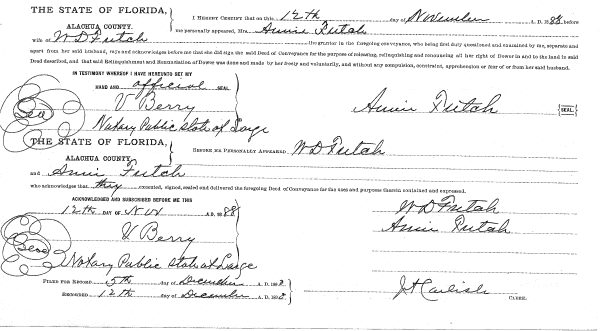 THE STATE OF FLORIDA,
ALACHUA COUNTY.
I HEREBY CERTIFY that on this 12th day of November A. D. 1888 before
me personally appeared, Mrs. Annie Futch
wife of W D Futch the grantor in the foregoing conveyance, who being first duly questioned and examined by me, separate and
apart from her said husband, says and acknowledges before me that she did sign the said Deed of Conveyance for the purpose of releasing, relinquishing and renouncing all her right of Dower in and to the land in said
Deed described, and that said Relinquishment and Renunciation of Dower was done and made by her freely and voluntarily, and without any compulsion, constraint, apprehension or fear of or from her said husband.
IN TESTIMONY WHEREOF I HAVE HEREUNTO SET MY
HAND AND official SEAL
V Berry
Annie Futch SEAL.
Notary Public State at Large
THE STATE OF FLORIDA,
ALACHUA COUNTY.
BEFORE ME PERSONALLY APPEARED W D Futch
and Annie Futch
who acknowledges that they executed, signed, sealed and delivered the foregoing Deed of Conveyance for the uses and purpose therein contained and expressed.
ACKNOWLEDGED AND SUBSCRIBED BEFORE ME THIS
12th DAY OF Nov A. D. 1888
W D Futch
V Berry
Annie Futch
Notary Public State at Large
FILED FOR RECORD 5th day of December A. D. 188
RECORDED 12th day of December A. D. 188
CLERK.